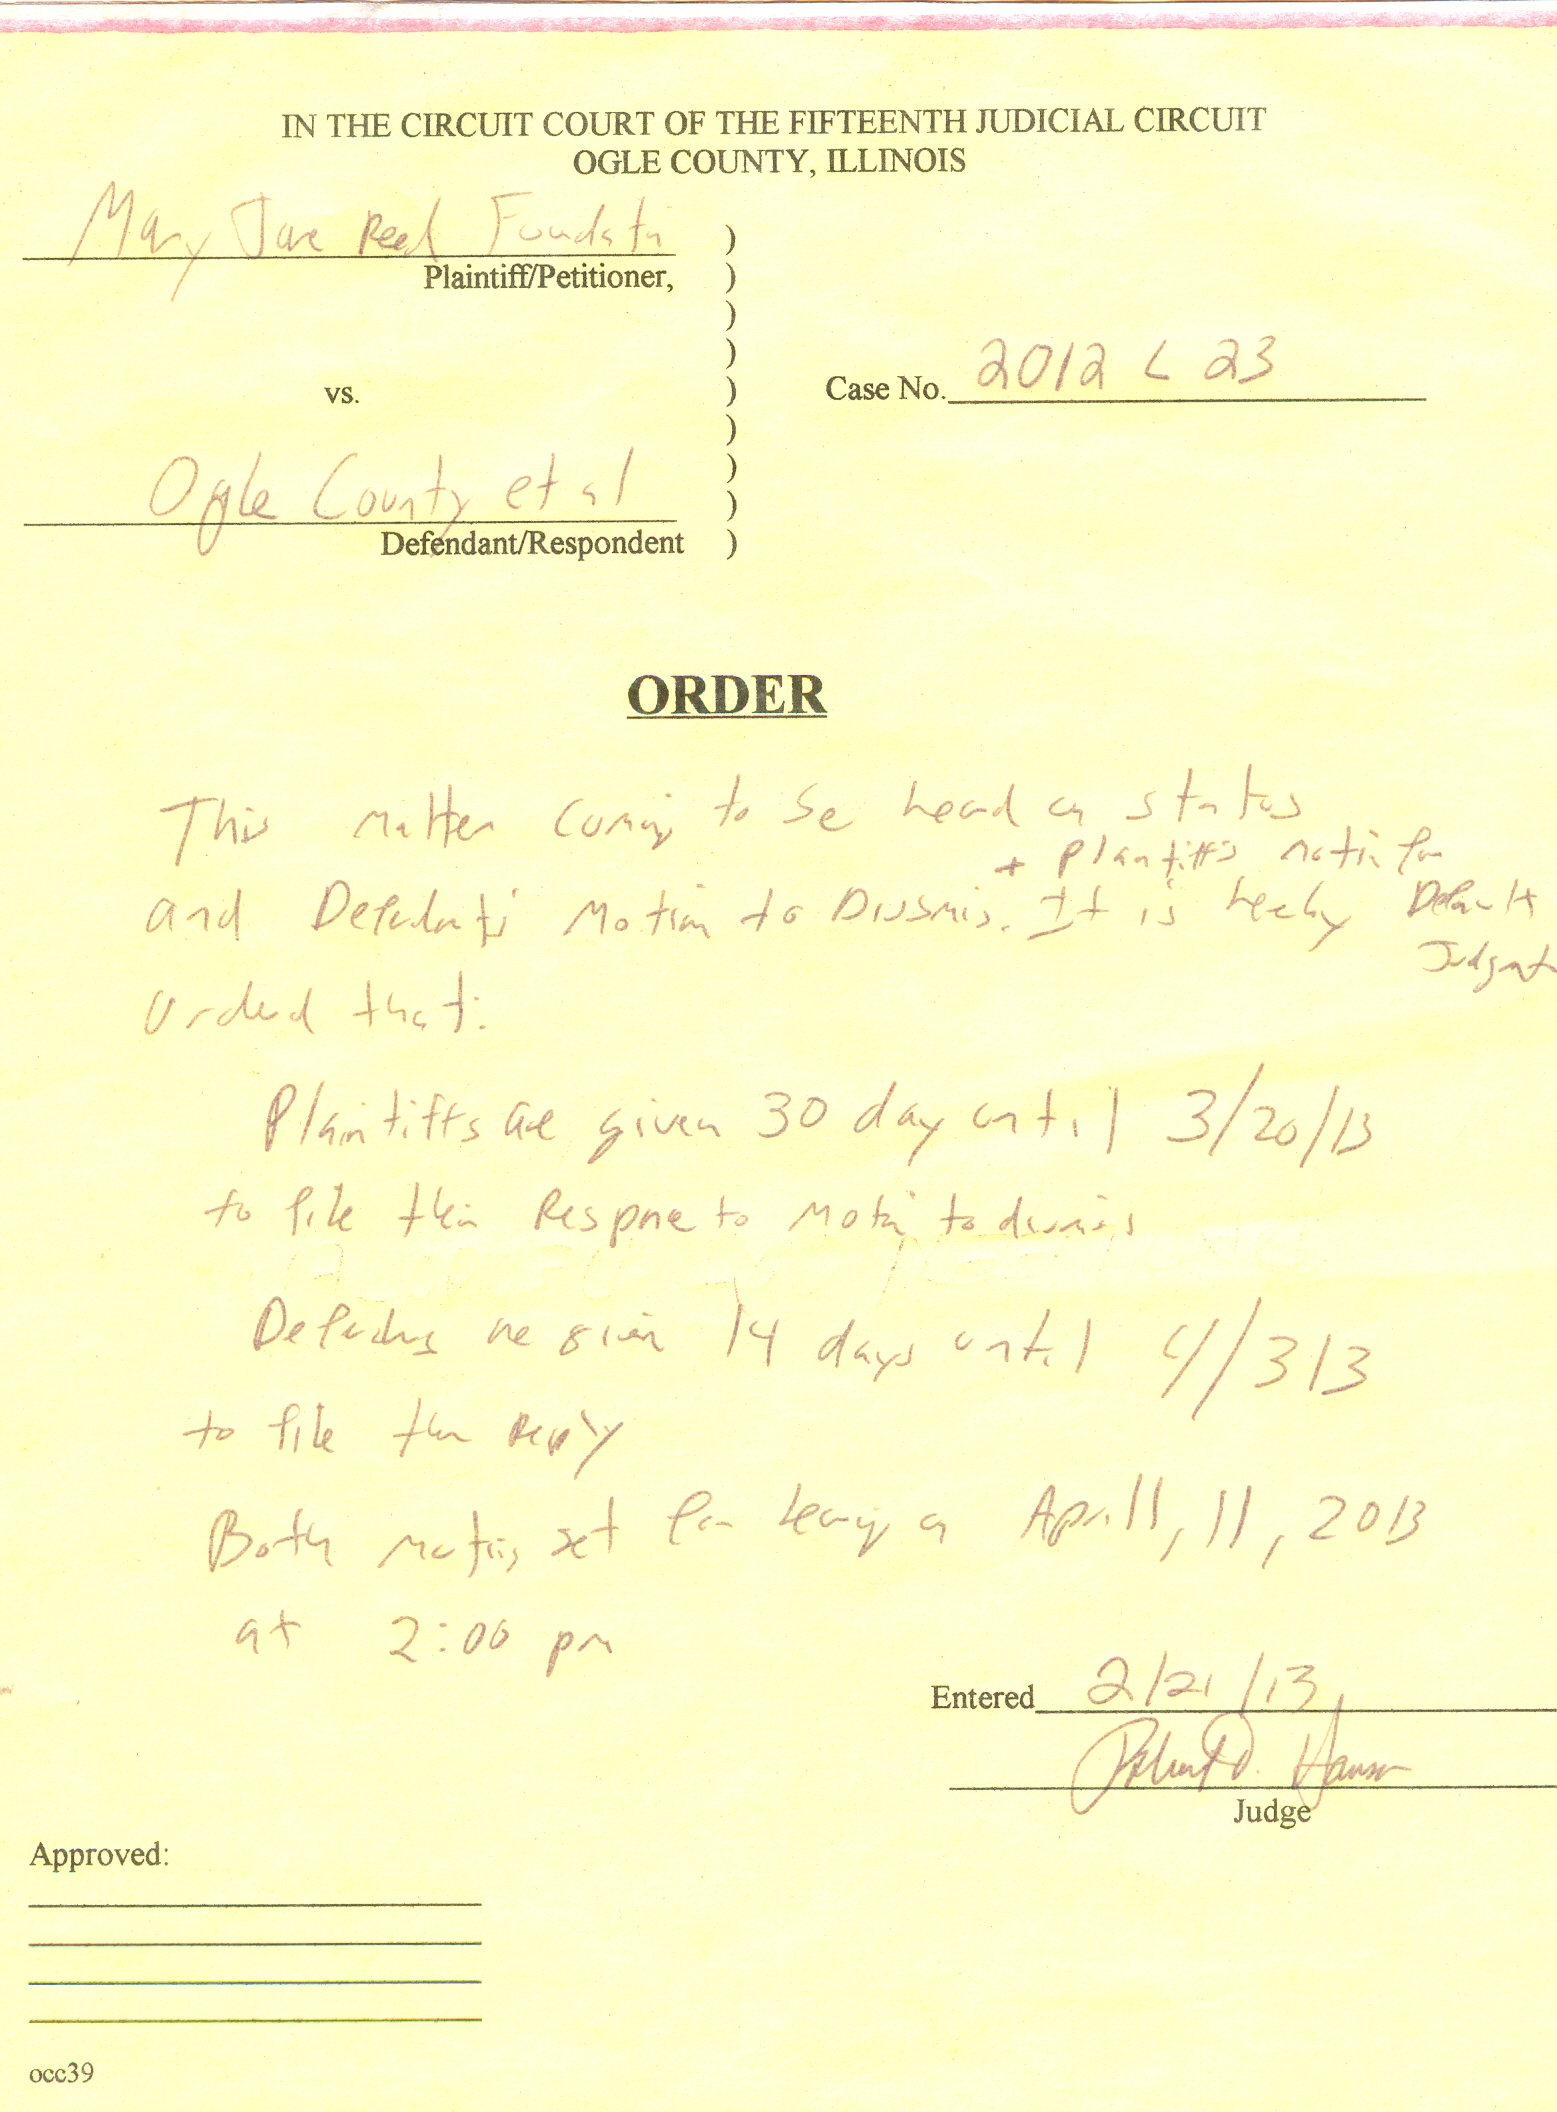 IN THE CIRCUIT COURT OF THE FIFTEENTH JUDICIAL CIRCUIT
OGLE COUNTY, ILLINOIS
Mary Jane Reed Foundatn )
Plaintiff/Petitioner, )
)
)
vs. )
Case No. 2012 L 23
)
)
Ogle County et al )
Defendant/Respondent )
ORDER
This matter coming to be heard on status
+ Plantiff's motin for
and Defendant's Motion to Dismis. It is hereby Default
Judgmt
Orderd that:
Plaintiffs are given 30 day until 3/20/13
to file their Respone to Motin to dismiss
Defendnts are given 14 days until 4/3/13
to file their Reply
Both motins set for hearing on Aprill, 11, 2013
at 2:00 pm
Entered 2/21/13
Robert D. Hanson
Judge
Approved:
occ39